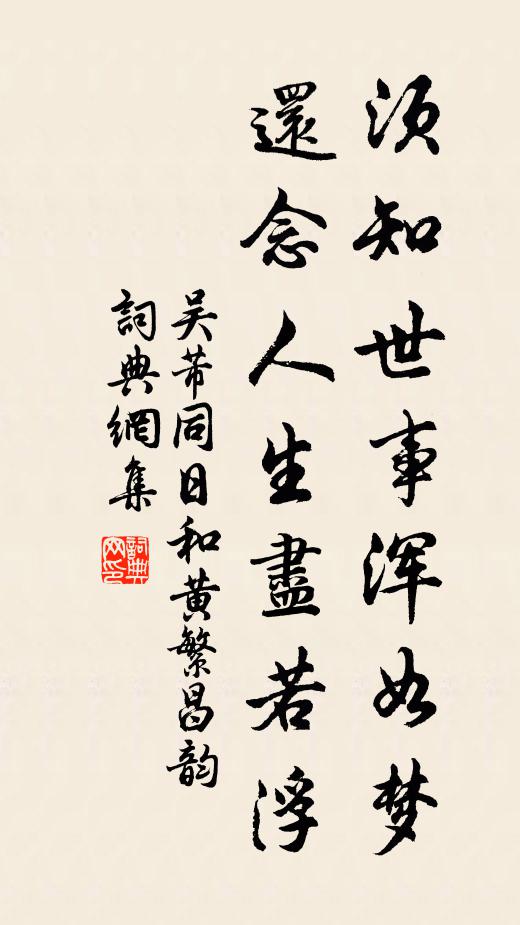 须知世事浑如梦
還念人生盡若浮
吴芾同日和黄繁昌韵
詞典網集
詞典
网印